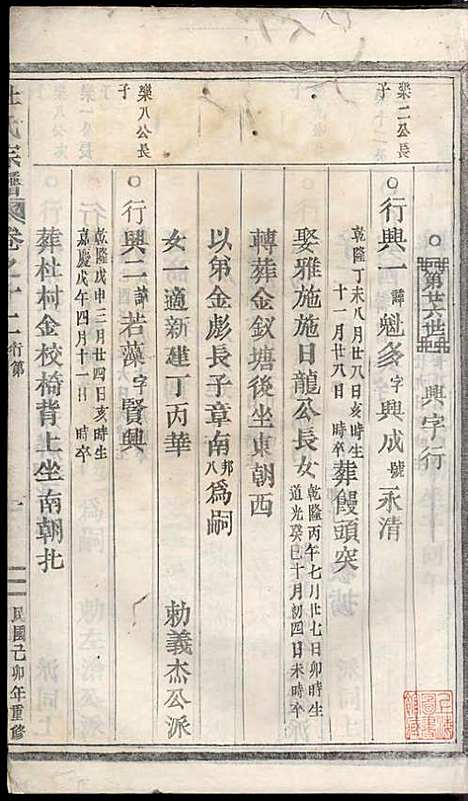 第廿六世 興字行
樂二公長子
行興一諱魁多字興成號永清
乾隆丁未八月廿八日亥時生
十一月廿八日 時卒
葬饅頭突
娶雅施施日龍公長女
乾隆丙午七月廿七日卯時生
道光癸巳十月初四日未時卒
轉葬金釵塘後坐東朝西
以弟金彪長子章南邦八為嗣
女一適新建丁丙華 勅義杰公派
樂八公長子
行興二諱若藻字賢興
乾隆戊申三月廿四日亥時生
嘉慶戊午四月十一日 時卒
葬杜村金校椅背上坐南朝北
杜氏宗譜 卷之十二 行第 一 民國己卯年重修